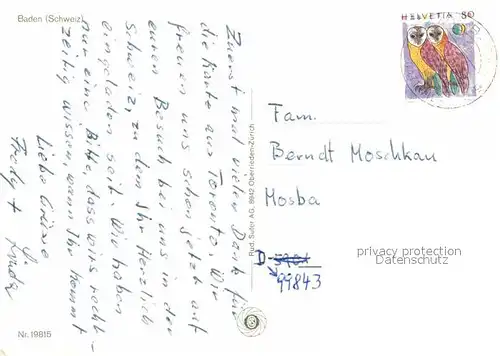 Baden (Schweiz)
Zuerst mal vielen Dank für
die Karte aus Toronto. Wir
freuen uns schon jetzt auf
euren Besuch bei uns in der
Schweiz, zu dem Ihr herzlich
eingeladen seit. Wir haben
nur eine Bitte, dass wir's recht-
zeitig wissen, wann Ihr kommt
Liebe Grüsse
Fredy +
Linda
Rud. Suter AG, 8942 Oberrieden-Zürich
HELVETIA 80
Fam.
Berndt Moschkau
Mosba
D-
99843
privacy protection
Datenschutz
Nr. 19815